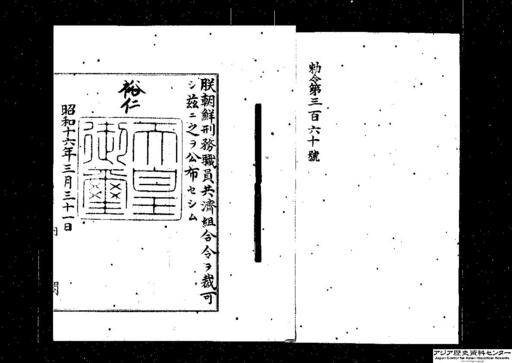 勅令第三百六十號
朕朝鮮刑務職員共濟組合令ヲ裁可
シ茲ニ之ヲ公布セシム
裕仁
天皇御璽
昭和十六年三月三十一日
アジア歴史資料センター
Japan Center for Asian Historical Records